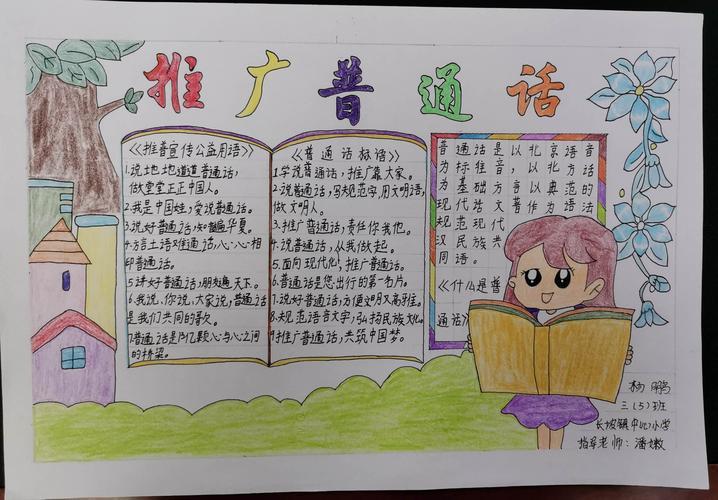 推广普通话
《推普宣传公益用语》
1.说地地道道普通话,
做堂堂正正中国人。
2.我是中国娃,爱说普通话。
3.说好普通话,知音遍华夏。
4.方言土语难通话,心心相
印普通话。
5.讲好普通话,朋友遍天下。
6.我说,你说,大家说,普通话
是我们共同的歌。
7.普通话是13亿颗心与心之间
的桥梁。
《普通话标语》
1.学说普通话,推广靠大家。
2.说普通话,写规范字,用文明语,
做文明人。
3.推广普通话,责任你我他。
4.说普通话,从我做起。
5.面向现代化,推广普通话。
6.普通话是您出行的第一名片。
7.说好普通话,方便文明又高雅。
8.规范语言文字,弘扬民族文化
9推广普通话,共筑中国梦。
普通话是以北京语音
为标准音,以北方话
为基础方言以典范的
现代话文著作为语法
规范现代
汉民族共
同语。
《什么是普
通话》
杨鹏
三(5)班
长坡镇中心小学
指导老师:潘嫩